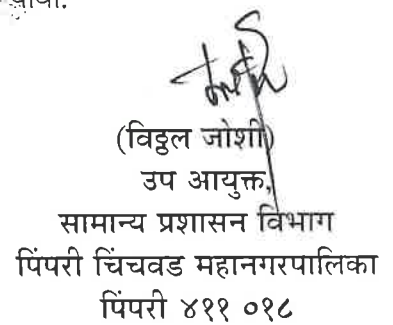 (विठ्ठल जोशी)
उप आयुक्त,
सामान्य प्रशासन विभाग
पिंपरी चिंचवड महानगरपालिका
पिंपरी ४११ ०१८